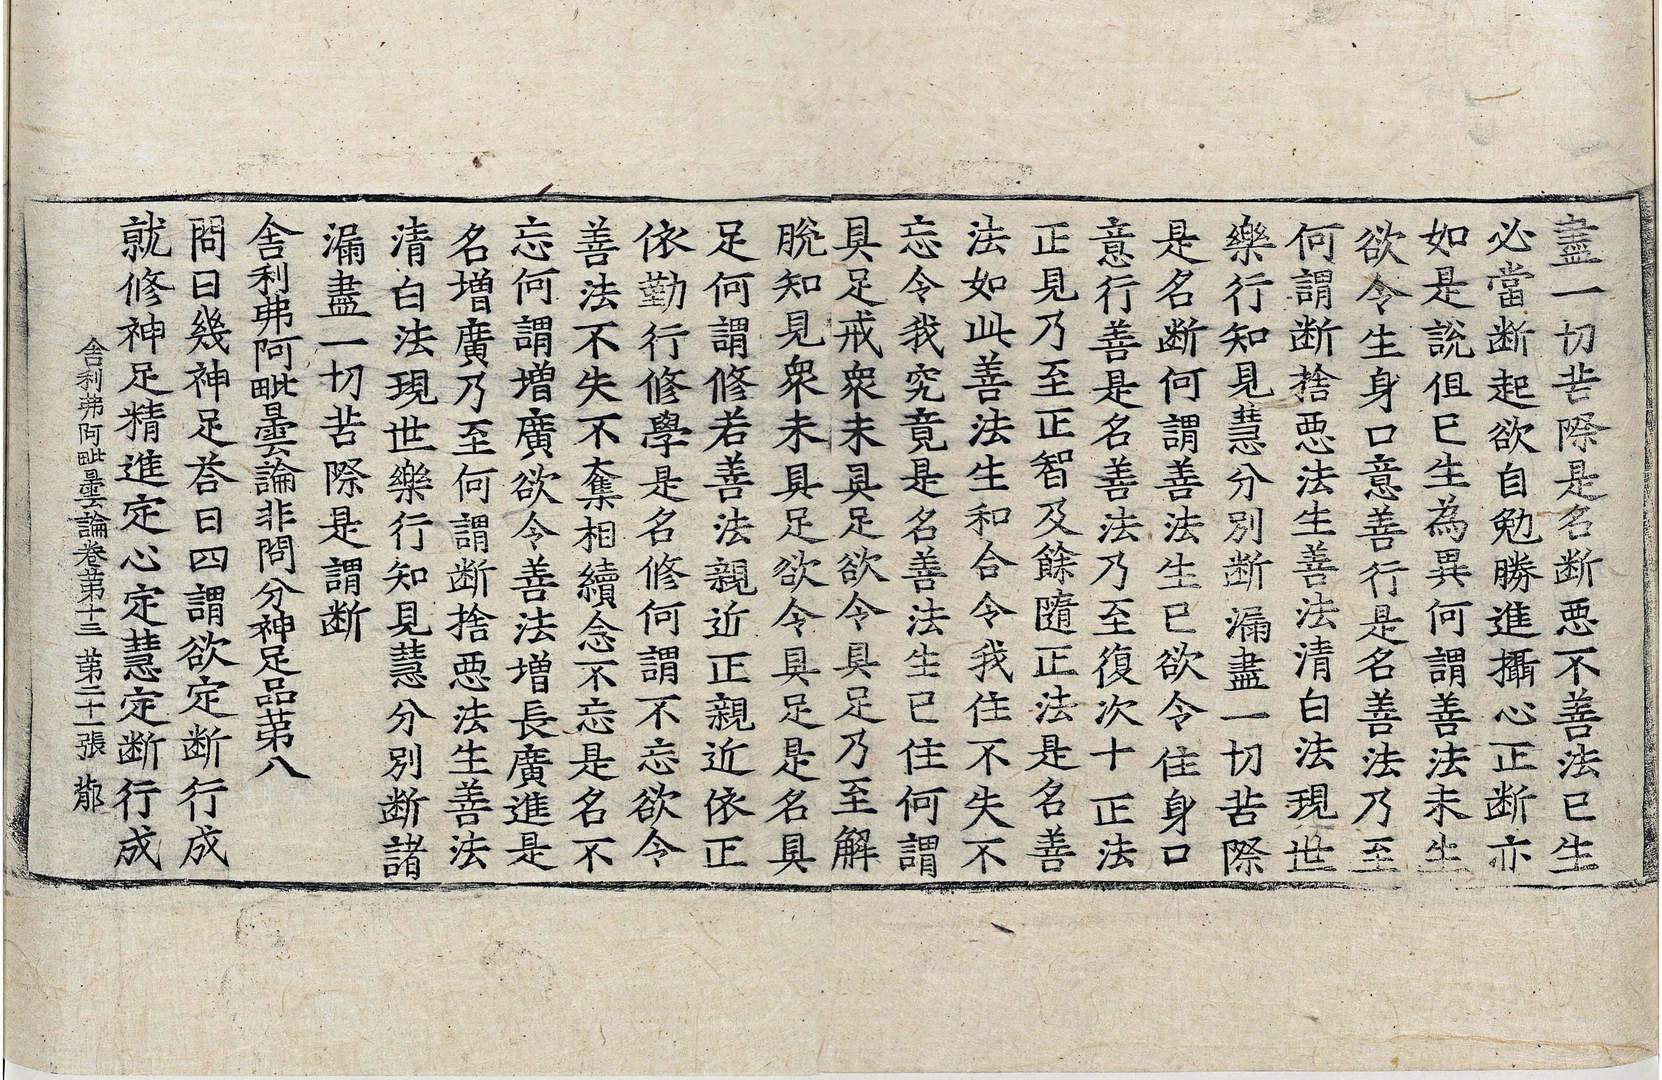 盡一切苦際是名断惡不善法已生
必當断起欲自勉勝進攝心正断亦
如是說但已生為異何謂善法未生
欲令生身口意善行是名善法乃至
何謂断捨惡法生善法清白法現世
樂行知見慧分別断漏盡一切苦際
是名断何謂善法生已欲令住身口
意行善是名善法乃至復次十正法
正見乃至正智及餘隨正法是名善
法如此善法生和合令我住不失不
忘令我究竟是名善法生已住何謂
具足戒衆未具足欲令具足乃至解
脫知見衆未具足欲令具足是名具
足何謂修若善法親近正親近依正
依勤行修學是名修何謂不忘欲令
善法不失不奪相續念不忘是名不
忘何謂増廣欲令善法増長廣進是
名増廣乃至何謂断捨惡法生善法
清白法現世樂行知見慧分別断諸
漏盡一切苦際是謂断
舍利弗阿毗曇論非問分神足品第八
問曰幾神足荅曰四謂欲定断行成
就修神足精進定心定慧定断行成
舍利弗阿毗曇論卷第十三 第二十一張